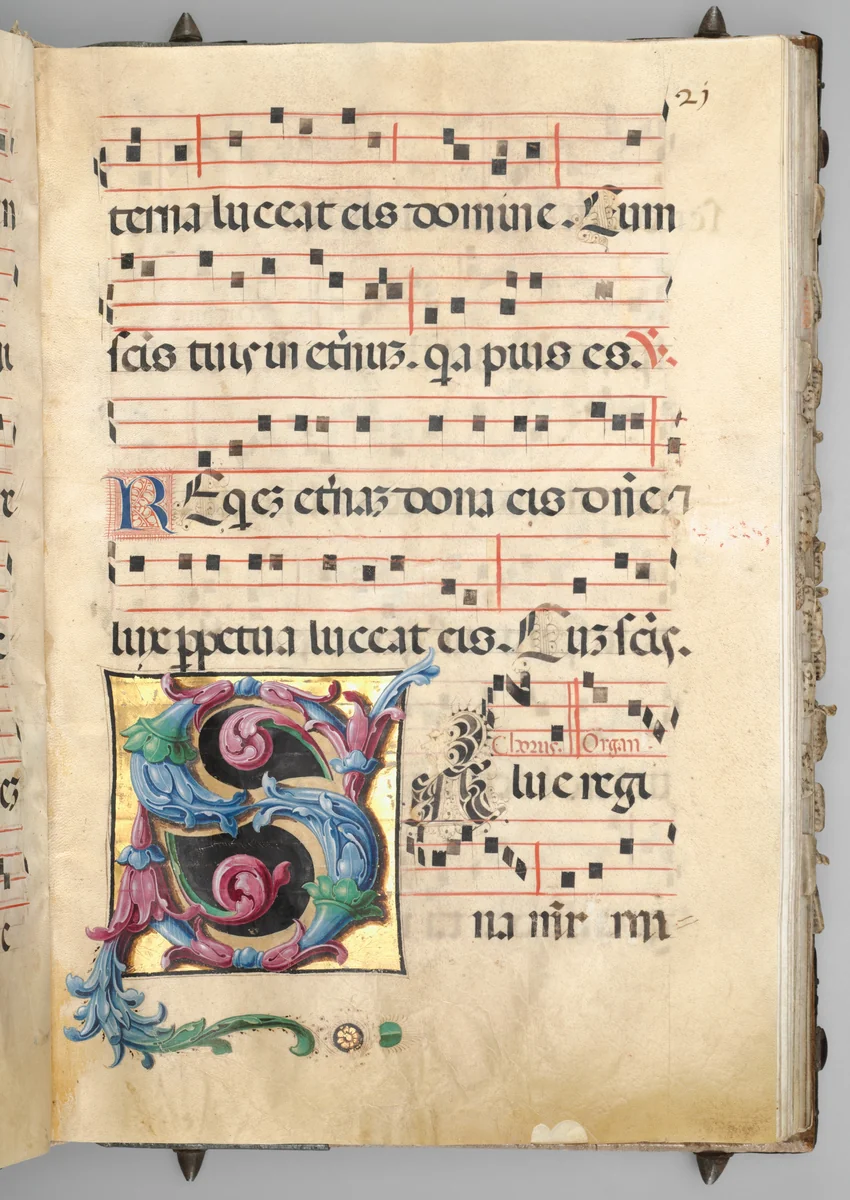 21
terna luceat eis domine. Cum
scis tuis in etnuʒ. qa pius es. V.
REqeʒ etnaʒ dona eis dñe ⁊
lux ppetua luceat eis. Cuʒ scis.
Chorus. Organ.
SAlue regi
na mir mi